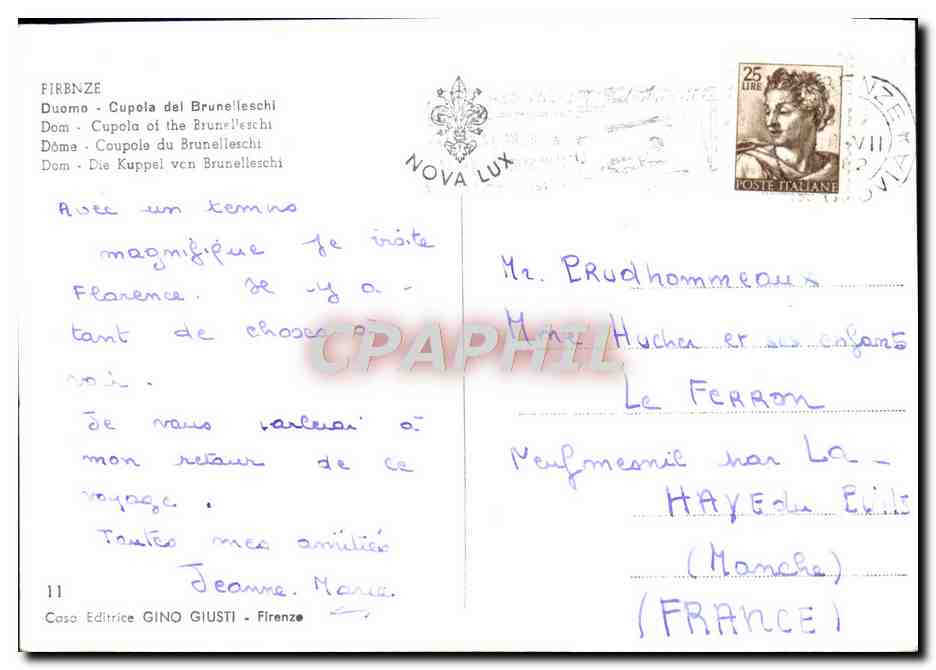 FIRENZE
Duomo - Cupola del Brunelleschi
Dom - Cupola of the Brunelleschi
Dôme - Coupole du Brunelleschi
Dom - Die Kuppel von Brunelleschi
NOVA LUX
25
LIRE
POSTE ITALIANE
VII
Avec un temps
magnifique je visite
Florence. Il y a
tant de choses à
voir.
Je vous parlerai à
mon retour de ce
voyage.
Toutes mes amitiés
Jeanne. Marie.
Mr. PRUdhommeaux
Mme Hucher et ses enfants
Le FERRON
Neufmesnil par LA
HAYE du Puits
(Manche)
(FRANCE)
CPAPHIL
11
Casa Editrice GINO GIUSTI - Firenze